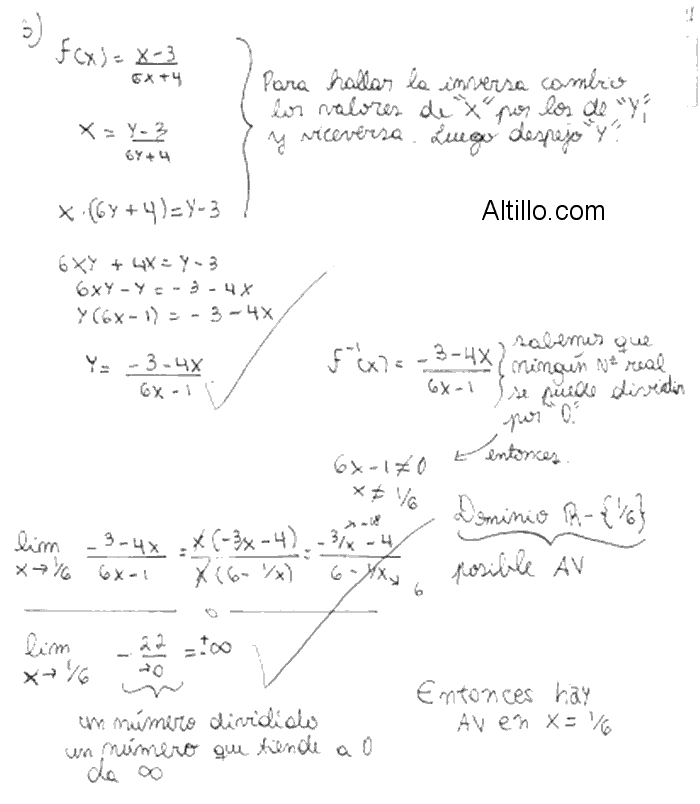 3)
f(x) = x-3 / 6x+4
x = y-3 / 6y+4
x·(6y+4)=y-3
Para hallar la inversa cambio
los valores de "x" por los de "y",
y viceversa. Luego despejo "y".
Altillo.com
6xy + 4x = y-3
6xy-y = -3-4x
y(6x-1) = -3-4x
y = -3-4x / 6x-1
f⁻¹(x) = -3-4x / 6x-1
sabemos que
ningún Nº real
se puede dividir
por "0."
entonces.
6x-1≠0
x ≠ 1/6
Dominio R-{1/6}
posible AV
lim x→1/6 -3-4x / 6x-1 = x(-3x-4) / x(6-1/x) = -3/x-4 / 6-1/x
6
lim x→1/6 -22 / →0 = ±∞
un número dividido
un número que tiende a 0
da ∞
Entonces hay
AV en x = 1/6